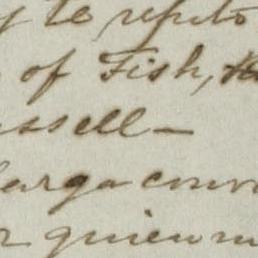 y te repito
of Fish,
ssell—
larga conv
quien